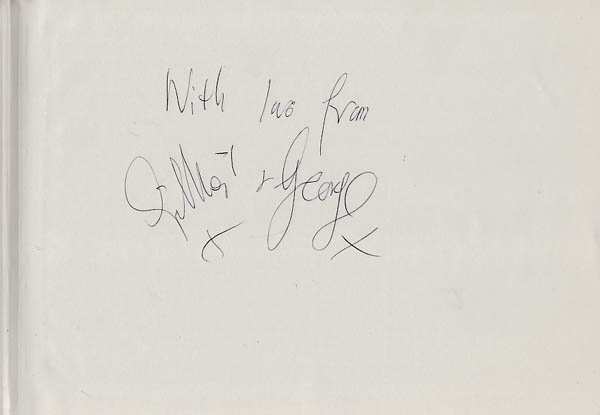 With love from
Gilbert & George
x x